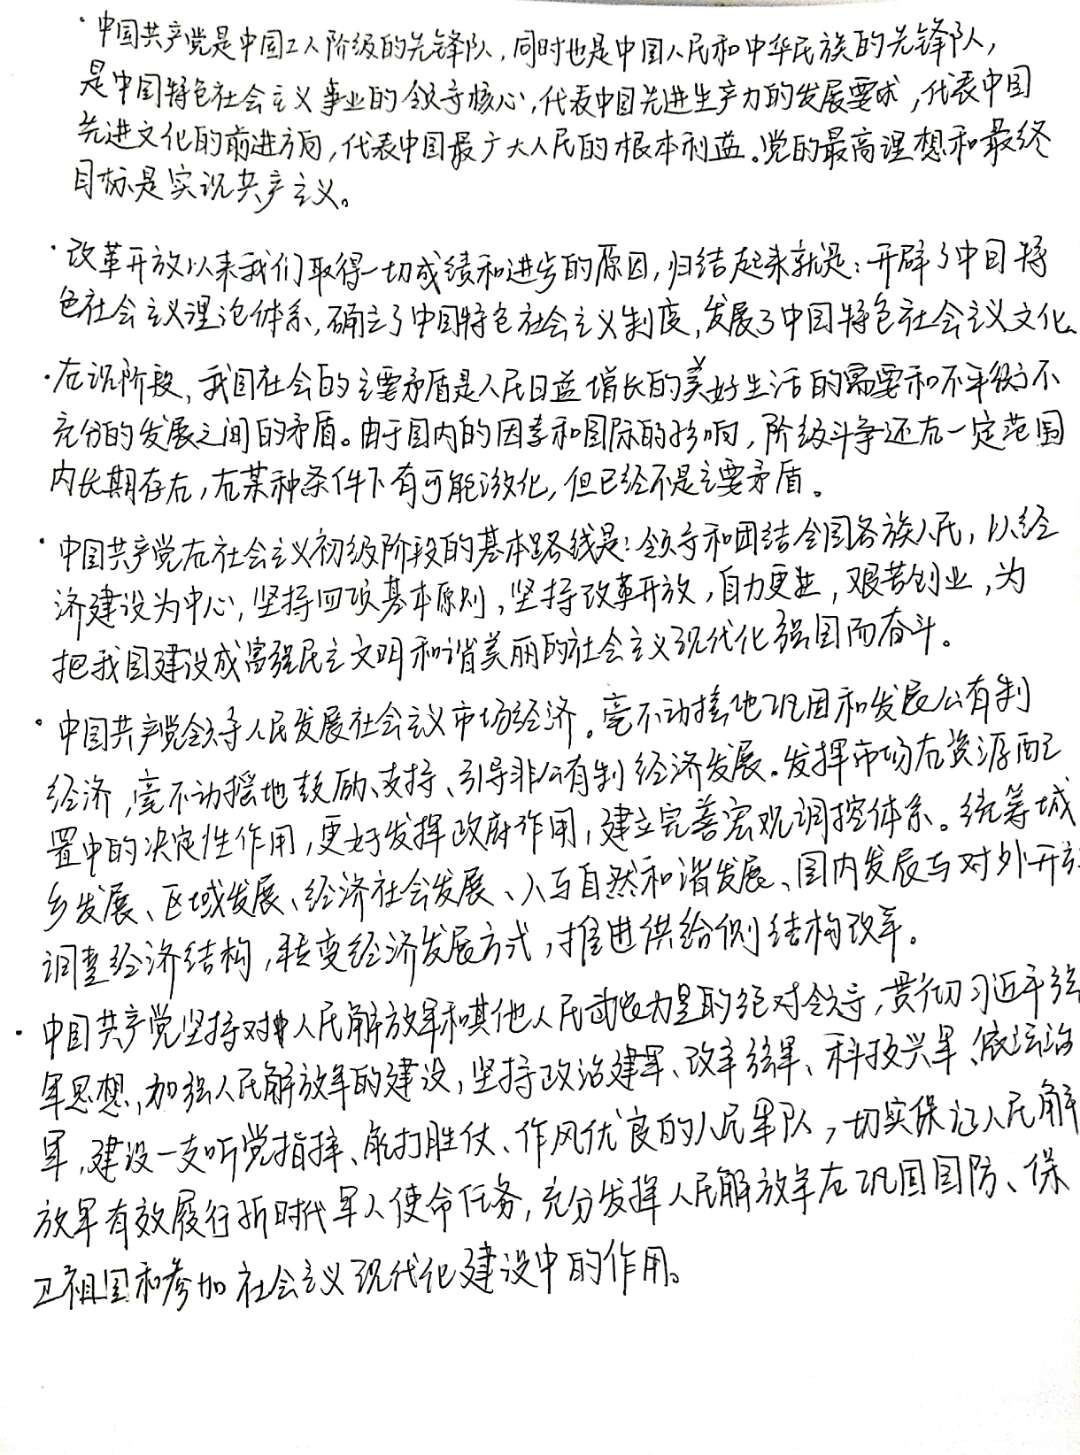 ·中国共产党是中国工人阶级的先锋队,同时也是中国人民和中华民族的先锋队,
是中国特色社会主义事业的领导核心,代表中国先进生产力的发展要求,代表中国
先进文化的前进方向,代表中国最广大人民的根本利益。党的最高理想和最终
目标是实现共产主义。
·改革开放以来我们取得一切成绩和进步的原因,归结起来就是:开辟了中国特
色社会主义理论体系,确立了中国特色社会主义制度,发展了中国特色社会主义文化
·在现阶段,我国社会的主要矛盾是人民日益增长的美好生活的需要和不平衡不
充分的发展之间的矛盾。由于国内的因素和国际的影响,阶级斗争还在一定范围
内长期存在,在某种条件下有可能激化,但已经不是主要矛盾。
·中国共产党在社会主义初级阶段的基本路线是:领导和团结全国各族人民,以经
济建设为中心,坚持四项基本原则,坚持改革开放,自力更生,艰苦创业,为
把我国建设成富强民主文明和谐美丽的社会主义现代化强国而奋斗。
·中国共产党领导人民发展社会主义市场经济。毫不动摇地巩固和发展公有制
经济,毫不动摇地鼓励、支持、引导非公有制经济发展。发挥市场在资源配
置中的决定性作用,更好发挥政府作用,建立完善宏观调控体系。统筹城
乡发展、区域发展、经济社会发展、人与自然和谐发展、国内发展与对外开放
调整经济结构,转变经济发展方式,推进供给侧结构改革。
·中国共产党坚持对人民解放军和其他人民武装力量的绝对领导,贯彻习近平强
军思想,加强人民解放军的建设,坚持政治建军、改革强军、科技兴军、依法治
军,建设一支听党指挥、能打胜仗、作风优良的人民军队,切实保证人民解
放军有效履行新时代军人使命任务,充分发挥人民解放军在巩固国防、保
卫祖国和参加社会主义现代化建设中的作用。